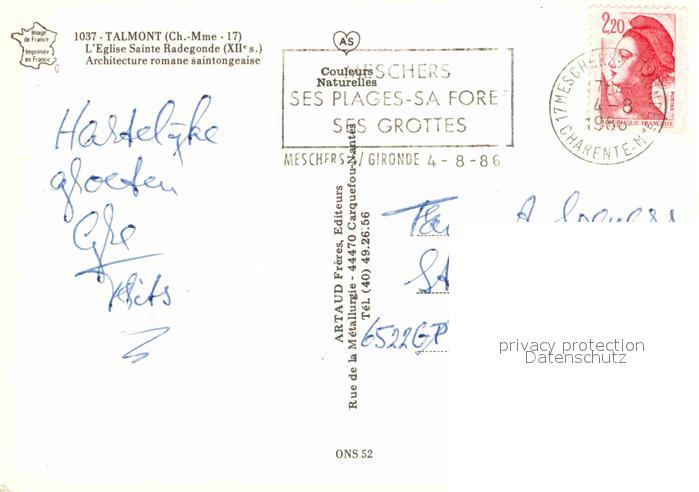 Image
de France
Imprimée
en France
1037 - TALMONT (Ch.-Mme - 17)
L'Eglise Sainte Radegonde (XIIe s.)
Architecture romane saintongeaise
AS
Couleurs
Naturelles
MESCHERS
SES PLAGES-SA FORET
SES GROTTES
MESCHERS S/GIRONDE 4-8-86
2,20
17 MESCHERS
4-8
1986
CHARENTE-Mme
REPUBLIQUE FRANÇAISE
POSTES
Hartelijke
groeten
Fam
St
6522GP
ARTAUD Frères, Editeurs
Rue de la Métallurgie - 44470 Carquefou-Nantes
Tél. (40) 49.26.56
privacy protection
Datenschutz
ONS 52